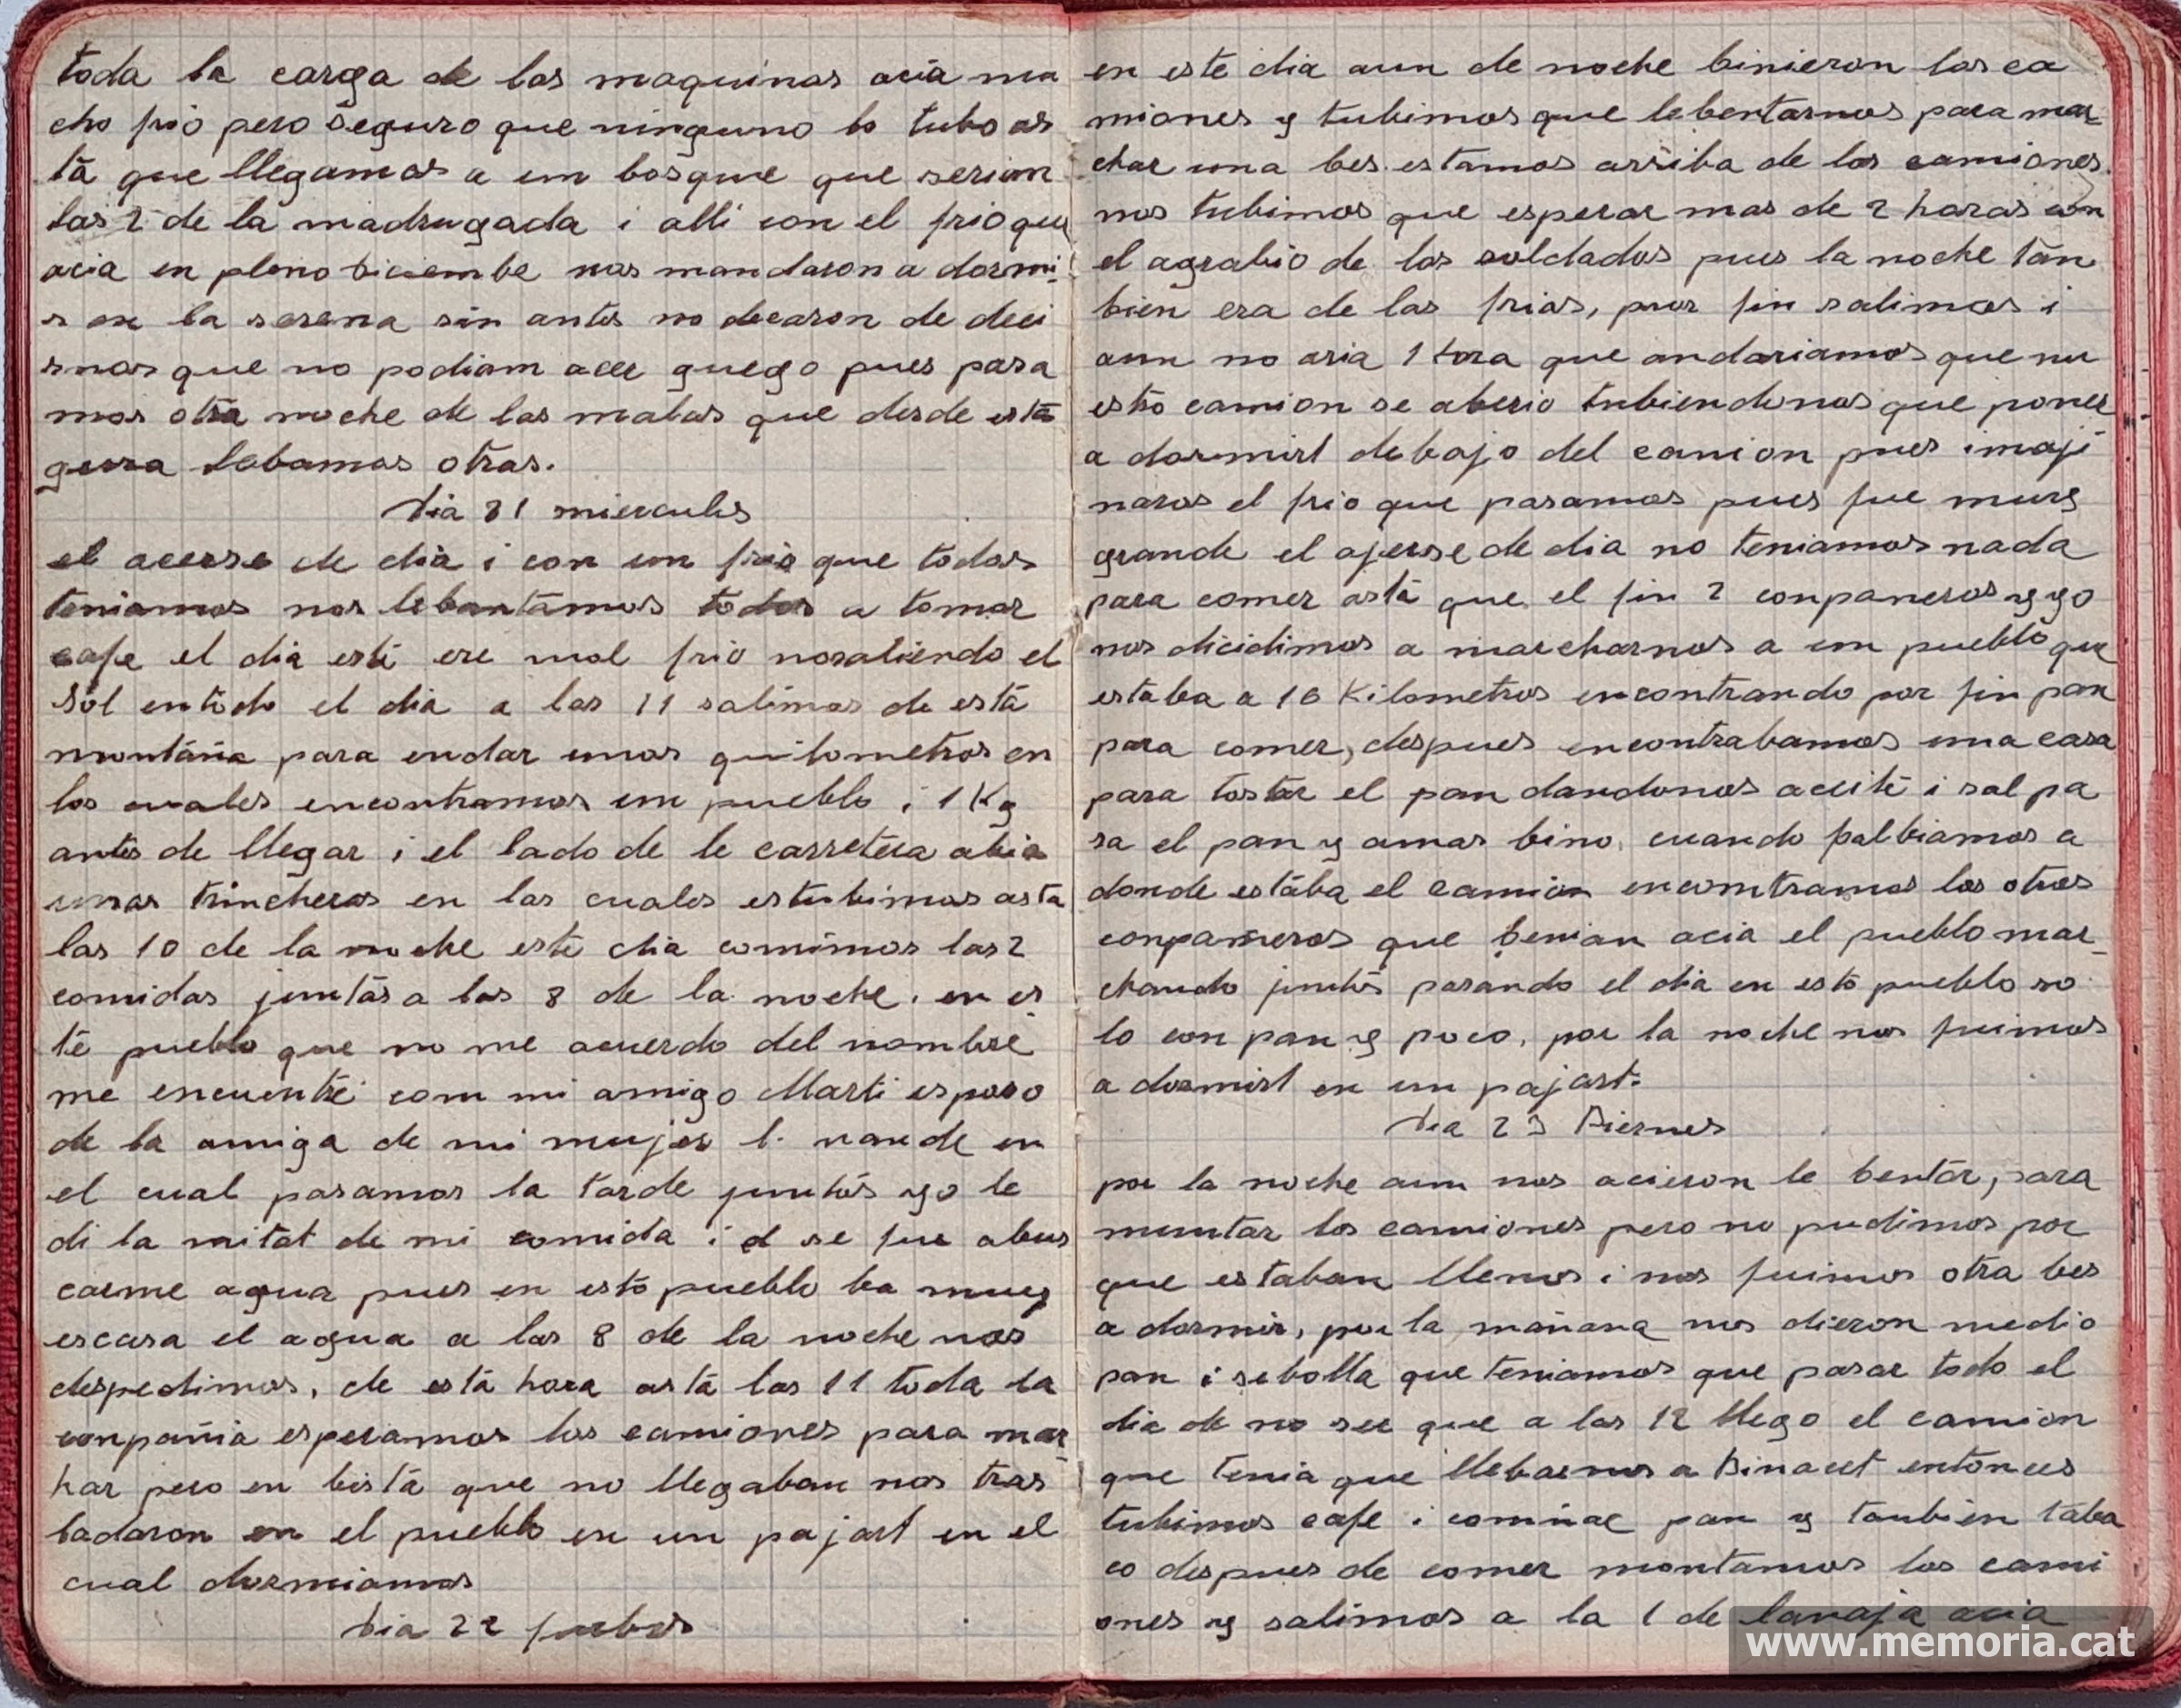 toda la carga de las maquinas acia mu
cho frio pero seguro que ninguno lo tubo as
ta que llegamos a um bosque que seriam
las 2 de la madrugada i alli con el frio que
acia en pleno diciembe nos mandaron a dormi
r en la serena sin antes no decaron de deci
rnos que no podiam acer guego pues pasa
mos otra noche de las malas que desde esta
gerra llebamos otras.
Dia 21 miercules
el acerse de dia i con un frio que todos
teniamos nos lebantamos todos a tomar
cafe el dia este ere mol frio nosaliendo el
sol entodo el dia a las 11 salimos de esta
montaña para endar unos quilometros en
los cuales encontramos um pueblo i 1 Kg
antes de llegar i el lado de le carretera abia
unas trincheras en las cuales estubimos asta
las 10 de la noche este dia comimos las 2
comidas juntas a las 8 de la noche. en es
te pueblo que no me acuerdo del nombre
me encuentre com mi amigo Marti esposo
de la amiga de mi mujer l. nande en
el cual pasamos la tarde juntos yo le
di la mitat de mi comida i el se fue abus
carme agua pues en esto pueblo ba muy
escasa el agua a las 8 de la noche nos
despedimos, de esta hora asta las 11 toda la
conpañia esperamos los camiones para mar
har pero en bista que no llegaban nos tras
ladaron en el pueblo en un pajart en el
cual dormiamos
Dia 22 juebes
en este dia aun de noche binieron los ca
miones y tubimos que lebentarnos para mar
char una bes estamos arriba de los camiones
nos tubimos que esperar mas de 2 horas con
el agrabio de los soldados pues la noche tan
bien era de las frias, por fin salimos i
aun no aria 1 hora que andariamos que nu
estro camion se aberio tubiendonos que poner
a dormirt debajo del camion pues imaji
naros el frio que pasamos pues fue muy
grande el aferse de dia no teniamos nada
para comer asta que el fin 2 conpaneros y yo
nos dicidimos a marcharnos a um pueblo que
estaba a 16 Kilometros encontrando por fin pan
para comer, despues encontrabamos una casa
para tostar el pan dandonos aceite i sal pa
ra el pan y amas bino, cuando balbiamos a
donde estaba el camion encomtramos los otros
conpaneros que benian acia el pueblo mar
chando juntos pasando el dia en esto pueblo so
lo con pan y poco, por la noche nos fuimos
a dormirt en um pajart.
Dia 23 Biernes
por la noche aun nos acieron le bentar, para
muntar los camiones pero no pudimos por
que estaban llenos i nos fuimos otra bes
a dormir, por la mañana nos dieron medio
pan i sebolla que teniamos que pasar todo el
dia de no ser que a las 12 llego el camion
que tenia que llebarnos a Binacet entonces
tubimos cafe i comiñac pan y tanbien taba
co despues de comer montamos los cami
ones y salimos a la 1 de lanaja acia
www.memoria.cat